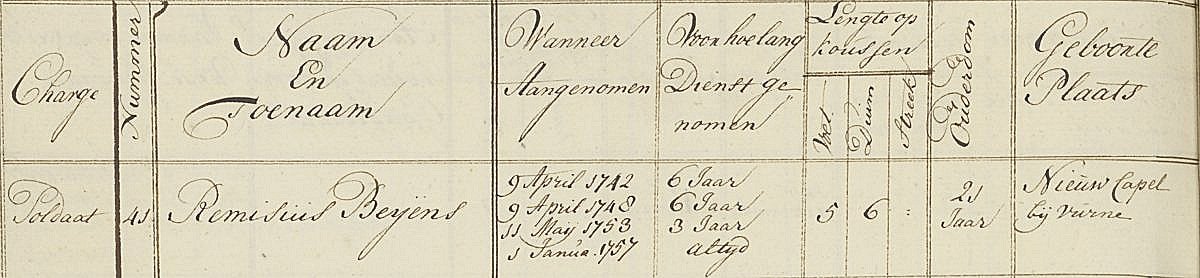 Charge
Nummer
Naam
En
Toenaam
Wanneer
Aangenomen
Voor hoe lang
Dienst ge„
nomen
Lengte op
koussen
Voet
Duim
Streek
Den Ouderdom
Geboorte
Plaats
Soldaat
41.
Remisius Beÿens
9 April 1742
9 April 1748
11 May 1753
1 Janúa. 1757
6 Jaar
6 Jaar
3 Jaar
altyd
5
6
:
21
Jaar
Nieúw Capel
bij vúrne